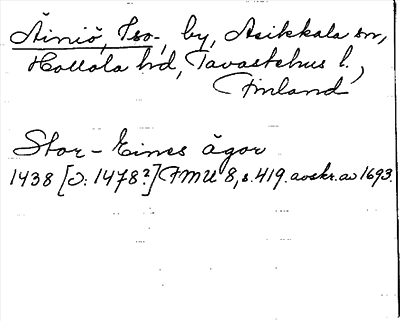 Äiniö, Iso-, by, Asikkala sn,
Hollola hd, Tavastehus l.,
Finland
Stor-Eines ägor
1438 [ɔ: 1478?] FMU 8, s. 419. avskr. av 1693.